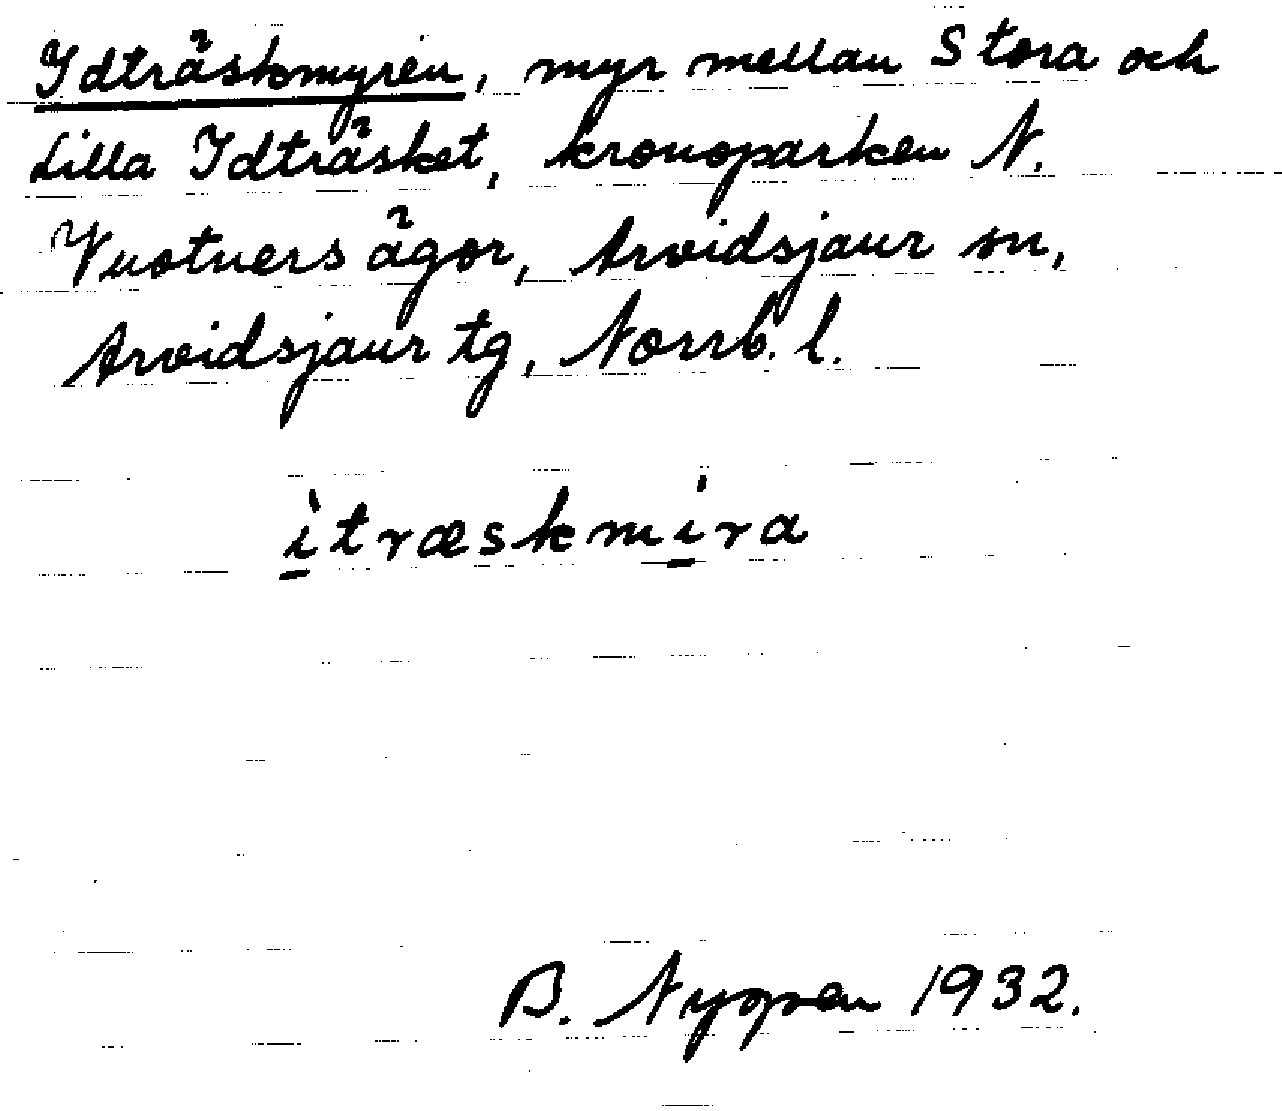 Idträskmyren, myr mellan Stora och
Lilla Idträsket, kronoparken N.
Vuotners ägor, Arvidsjaur sn,
Arvidsjaur tg, Norrb. l.
ìtræskmíra
B. Nygren 1932.